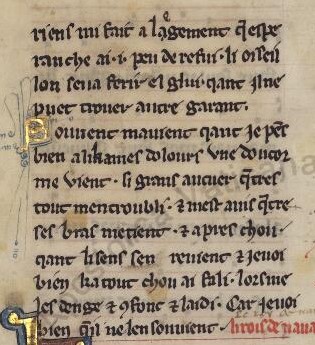 riens mi fait alagement q̃ espe
ranche ai · i · peu de refui · li oiseil
lon seva ferir el glui · qant il ne
puet trover autre garant ·
Souvient mavient qant je pẽs
bien a li k'ames dolours une doucor
me vient · si grans au cuer q̃ tres
tout mentroubli · ⁊ mest avis q̃ tre
ses bras me tient · ⁊ apres chou ·
qant li sens sen revient ⁊ je voi
bien ka tout chou ai fali · lors me
les denge ⁊ 9font ⁊ laidi · Car je voi
bien q̃il ne len souvient · li rois de nava